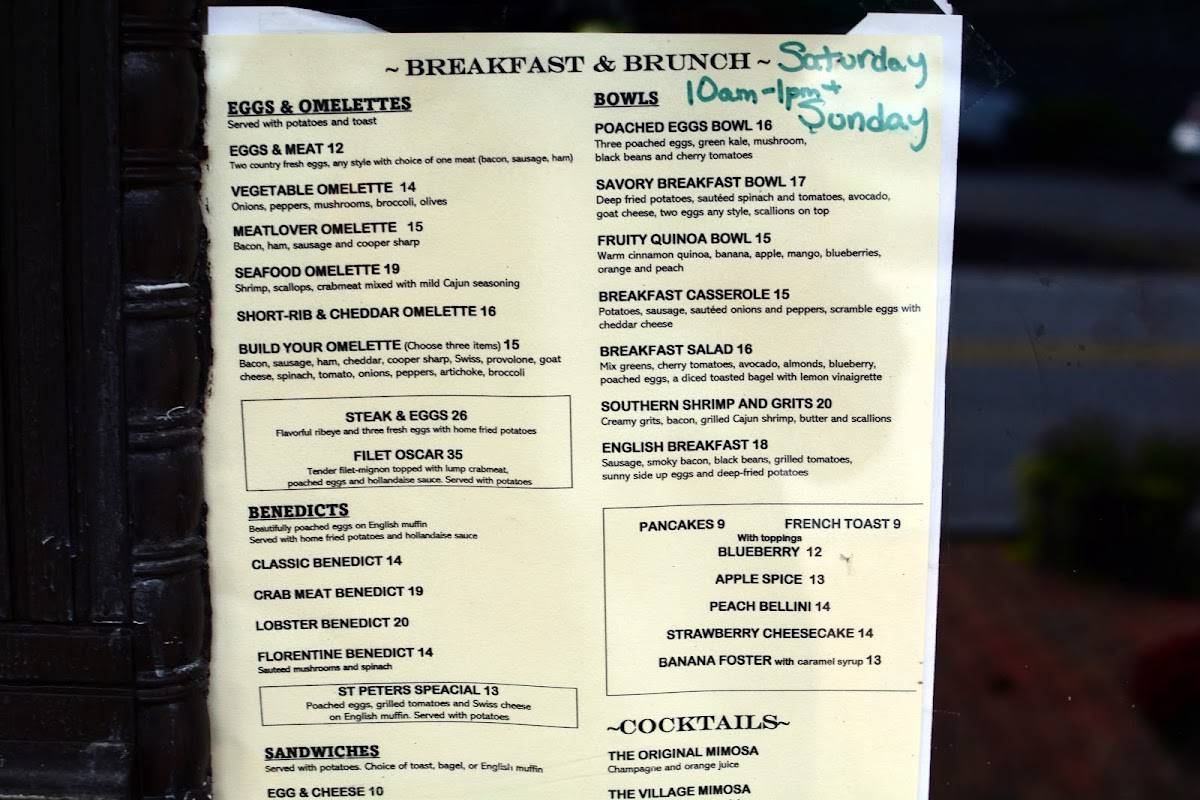 ~ BREAKFAST & BRUNCH ~ Saturday
10am-1pm +
Sunday
EGGS & OMELETTES
Served with potatoes and toast
EGGS & MEAT 12
Two country fresh eggs, any style with choice of one meat (bacon, sausage, ham)
VEGETABLE OMELETTE 14
Onions, peppers, mushrooms, broccoli, olives
MEATLOVER OMELETTE 15
Bacon, ham, sausage and cooper sharp
SEAFOOD OMELETTE 19
Shrimp, scallops, crabmeat mixed with mild Cajun seasoning
SHORT-RIB & CHEDDAR OMELETTE 16
BUILD YOUR OMELETTE (Choose three items) 15
Bacon, sausage, ham, cheddar, cooper sharp, Swiss, provolone, goat
cheese, spinach, tomato, onions, peppers, artichoke, broccoli
STEAK & EGGS 26
Flavorful ribeye and three fresh eggs with home fried potatoes
FILET OSCAR 35
Tender filet-mignon topped with lump crabmeat,
poached eggs and hollandaise sauce. Served with potatoes
BENEDICTS
Beautifully poached eggs on English muffin
Served with home fried potatoes and hollandaise sauce
CLASSIC BENEDICT 14
CRAB MEAT BENEDICT 19
LOBSTER BENEDICT 20
FLORENTINE BENEDICT 14
Sauteed mushrooms and spinach
ST PETERS SPEACIAL 13
Poached eggs, grilled tomatoes and Swiss cheese
on English muffin. Served with potatoes
SANDWICHES
Served with potatoes. Choice of toast, bagel, or English muffin
EGG & CHEESE 10
BOWLS
POACHED EGGS BOWL 16
Three poached eggs, green kale, mushroom,
black beans and cherry tomatoes
SAVORY BREAKFAST BOWL 17
Deep fried potatoes, sautéed spinach and tomatoes, avocado,
goat cheese, two eggs any style, scallions on top
FRUITY QUINOA BOWL 15
Warm cinnamon quinoa, banana, apple, mango, blueberries,
orange and peach
BREAKFAST CASSEROLE 15
Potatoes, sausage, sautéed onions and peppers, scramble eggs with
cheddar cheese
BREAKFAST SALAD 16
Mix greens, cherry tomatoes, avocado, almonds, blueberry,
poached eggs, a diced toasted bagel with lemon vinaigrette
SOUTHERN SHRIMP AND GRITS 20
Creamy grits, bacon, grilled Cajun shrimp, butter and scallions
ENGLISH BREAKFAST 18
Sausage, smoky bacon, black beans, grilled tomatoes,
sunny side up eggs and deep-fried potatoes
PANCAKES 9 FRENCH TOAST 9
With toppings
BLUEBERRY 12
APPLE SPICE 13
PEACH BELLINI 14
STRAWBERRY CHEESECAKE 14
BANANA FOSTER with caramel syrup 13
~COCKTAILS~
THE ORIGINAL MIMOSA
Champagne and orange juice
THE VILLAGE MIMOSA